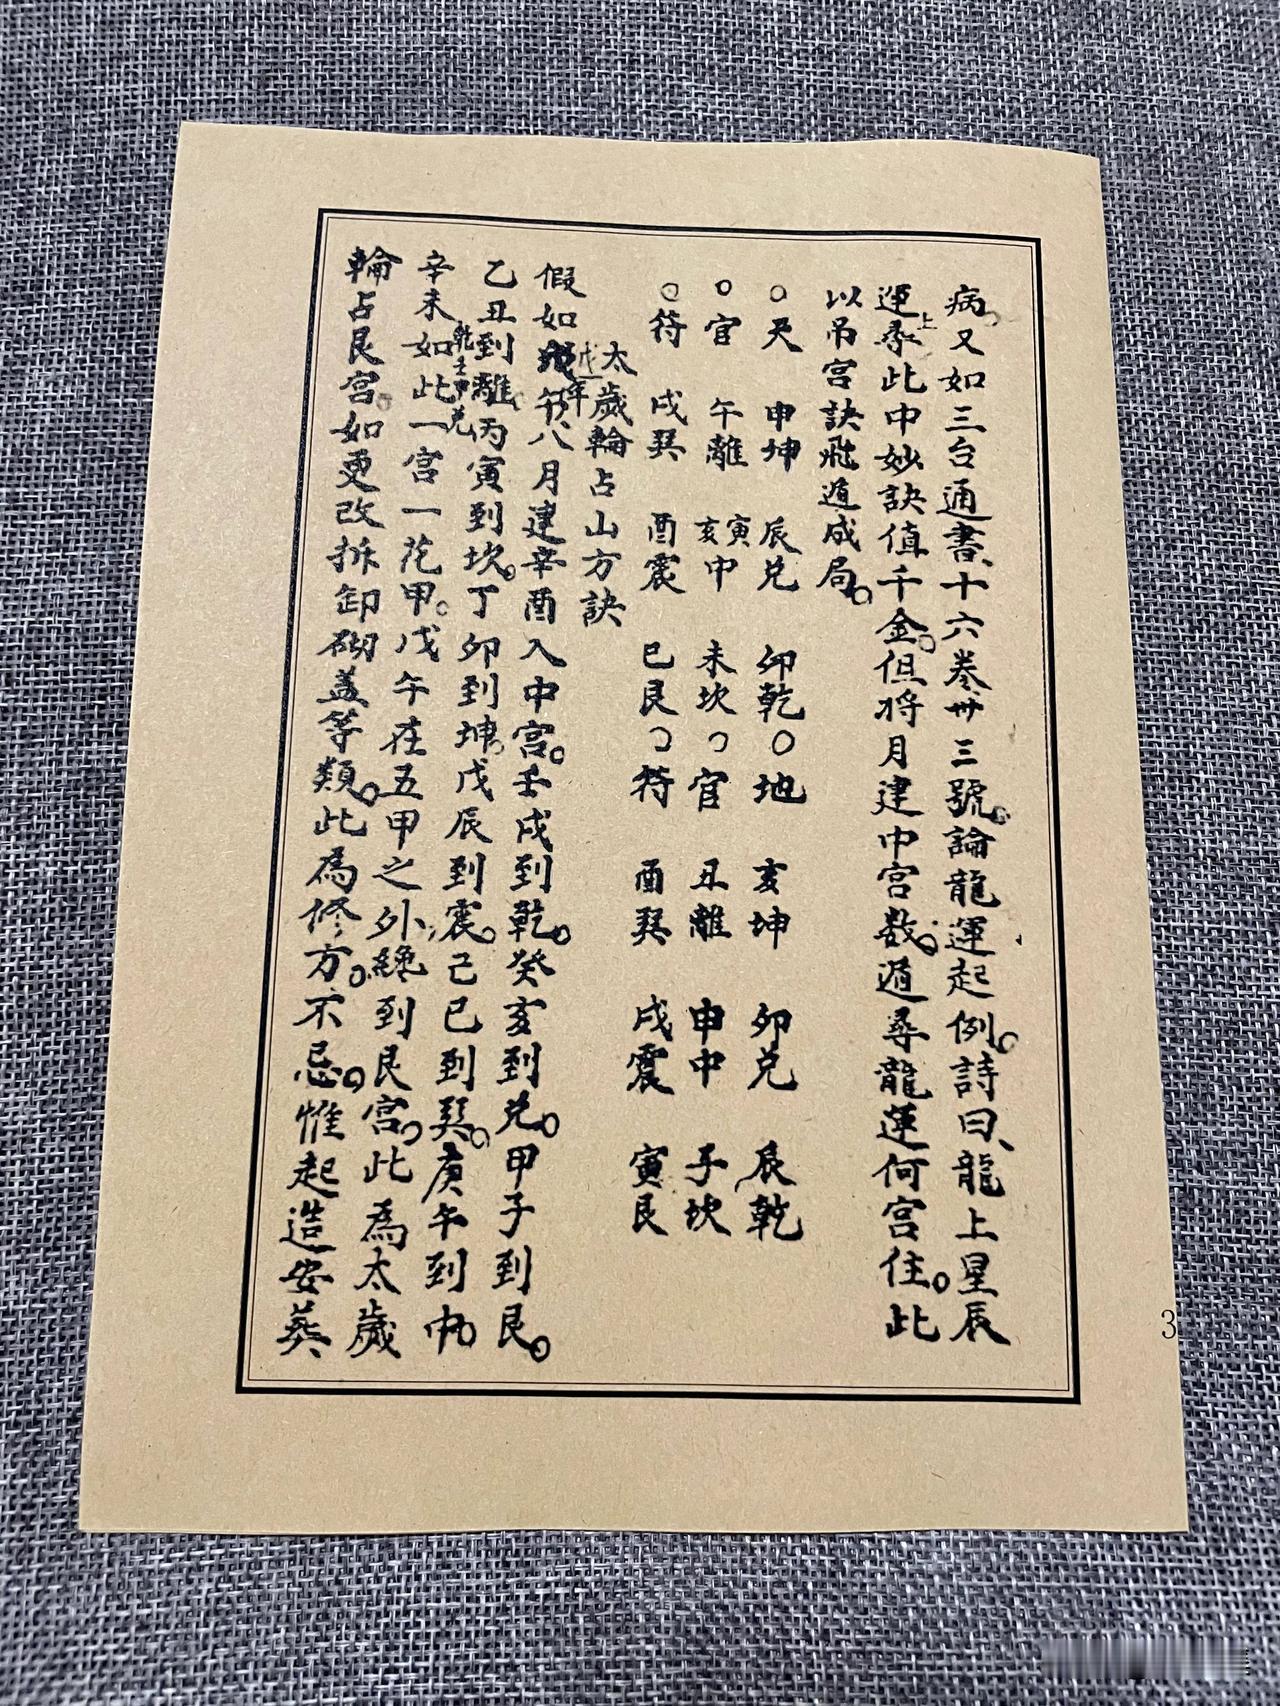 病。又如三台通書、十六卷卅三號。論龍運起例。詩曰、龍上星辰
運上承此中妙訣值千金。但將月建中宮数。遁尋龍運何宮住。此
以吊宮訣飛遁成局。
○天 申坤 辰兌 卯乾 ○地 亥坤 卯兌 辰乾
○官 午離 寅亥中 未坎 ○官 丑離 申中 子坎
○符 戌巽 酉震 巳艮 ○符 酉巽 戌震 寅艮
太歲輪占山方訣
假如戊午年八月建辛酉入中宮。壬戌到乾。癸亥到兌。甲子到艮。
乙丑到離。丙寅到坎。丁卯到坤。戊辰到震。己巳到巽。庚午到中。
辛未乾壬申兌如此一宮一花甲。戊午在五甲之外、纔到艮宮。此為太歲
輪占艮宮。如更改拆卸砌盖等類。此為修方。不忌。惟起造安葬
3